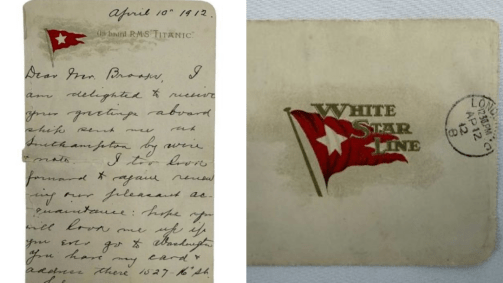 April 10" 1912.
On board R.M.S "TITANIC"
Dear Mrs. Brooks, I
am delighted to receive
your greetings aboard
ship sent me at
Southampton by wire
note. I too look
forward to again renew
ing our pleasant ac
quaintance: hope you
will look me up if
you ever go to Washington
You have my card &
address there 1527-16" St
WHITE
STAR
LINE
LON
AP 12
12
8